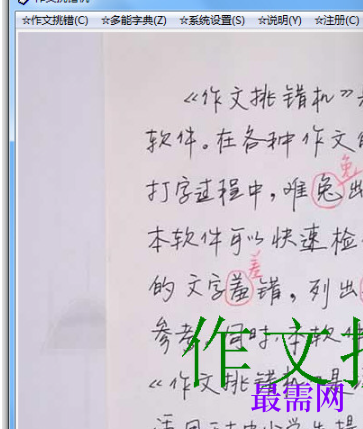 ☆作文挑错(C) ☆多能字典(Z) ☆系统设置(S) ☆说明(Y) ☆注册(C)
《作文挑错机》
软件。在各种作文
免
打字过程中，唯兔出
本软件可以快速检
差
的文字羞错，列出
参考。同时，本软件
作文
《作文挑错机》是
最需网